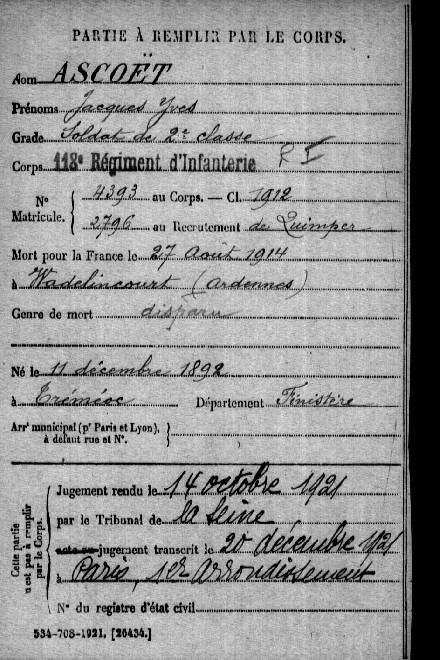 PARTIE À REMPLIR PAR LE CORPS.
Nom ASCOËT
Prénoms Jacques Yves
Grade Soldat de 2e classe
Corps 118e Régiment d'Infanterie RI
N° Matricule. { 4393 au Corps. — Cl. 1912
2796 au Recrutement de Quimper
Mort pour la France le 27 Août 1914
à Wadelincourt (Ardennes)
Genre de mort disparu
Né le 11 décembre 1892
à Tréméoc Département Finistère
Arrt municipal (pr Paris et Lyon), à défaut rue et N°. }
Cette partie n'est pas à remplir par le Corps.
Jugement rendu le 14 octobre 1921
par le Tribunal de la Seine
acte ou jugement transcrit le 20 décembre 1921
à Paris, 1er Arrondissement
N° du registre d'état civil
534-708-1921. [26434.]